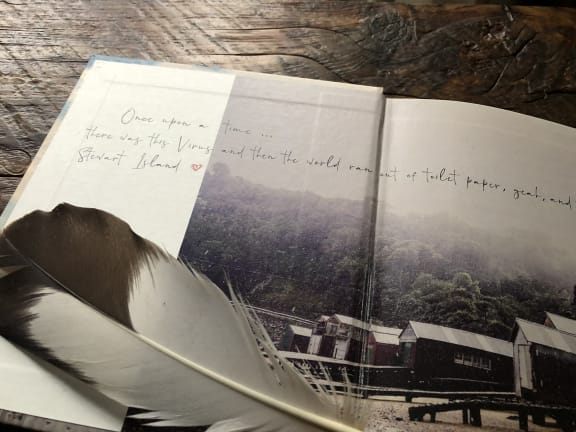 Once upon a time ...
there was this Virus, and then the world ran out of toilet paper, yeah, and
Stewart Island ♡